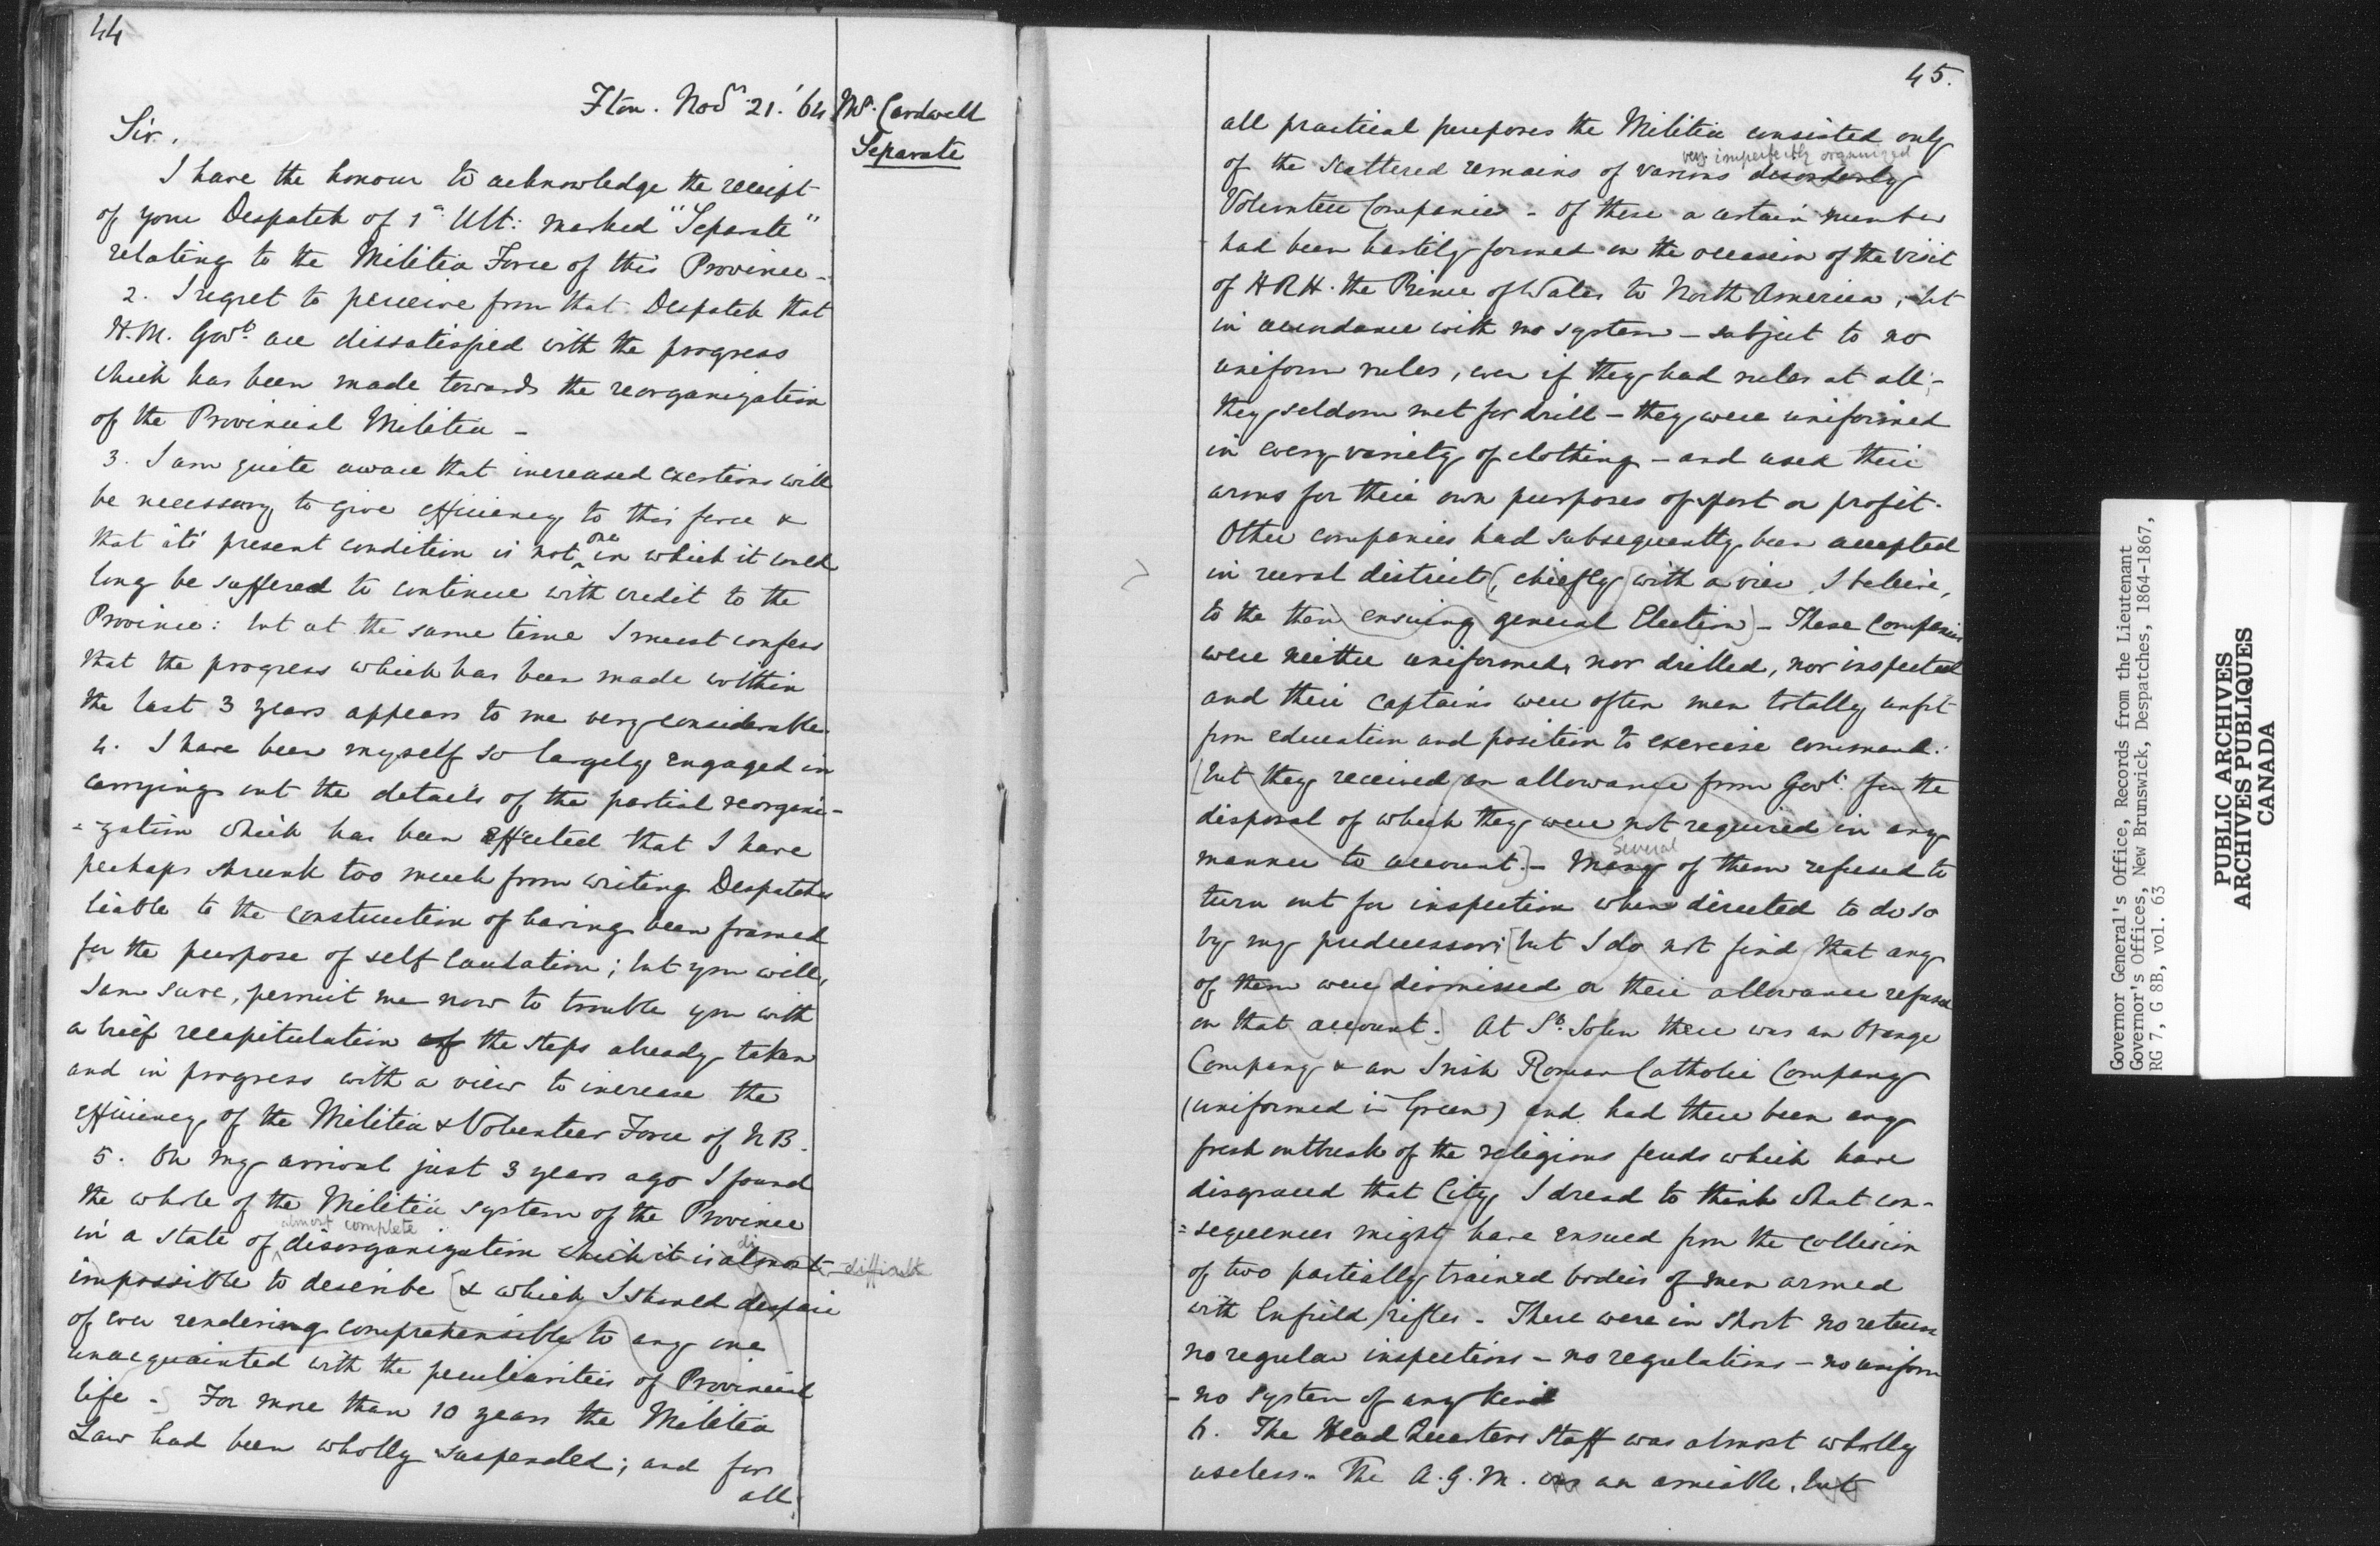 44
Fton. Novr 21. '64
Mr. Cardwell
Separate
Sir.,
I have the honour to acknowledge the receipt
of your Despatch of 1st Ult: marked "Separate"
relating to the Militia Force of this Province -
2. I regret to perceive from that Despatch that
H.M. Govt. are dissatisfied with the progress
which has been made towards the reorganization
of the Provincial Militia -
3. I am quite aware that increased exertions will
be necessary to give efficiency to this force &
that its present condition is not one in which it could
long be suffered to continue with credit to the
Province: but at the same time I must confess
that the progress which has been made within
the last 3 years appears to me very considerable.
4. I have been myself so largely engaged in
carrying out the details of the partial reorgani-
=zation which has been effected that I have
perhaps shrunk too much from writing Despatches
liable to the construction of having been framed
for the purpose of self laudation; but you will,
I am sure, permit me now to trouble you with
a brief recapitulation of the steps already taken
and in progress with a view to increase the
efficiency of the Militia & Volunteer Force of NB.
5. On my arrival just 3 years ago I found
the whole of the Militia system of the Province
almost complete
in a state of disorganization which it is almost difficult
impossible to describe [& which I should despair
of ever rendering comprehensible to any one
unacquainted with the peculiarities of Provincial
life -] For more than 10 years the Militia
Law had been wholly suspended; and for
all
45.
all practical purposes the Militia consisted only
very imperfectly organized
of the scattered remains of various disorderly
Volunteer Companies - Of these a certain number
had been hastily formed on the occasion of the visit
of HRH. the Prince of Wales to North America, but
in accordance with no system - subject to no
uniform rules, even if they had rules at all; -
they seldom met for drill - they were uniformed
in every variety of clothing - and used their
arms for their own purposes of sport or profit.
Other companies had subsequently been accepted
in rural districts (, chiefly with a view, I believe,
to the then ensuing general Election) - These Companies
were neither uniformed, nor drilled, nor inspected
and their Captains were often men totally unfit
from education and position to exercise command:
[but they received an allowance from Govt. for the
disposal of which they were not required in any
Several
manner to account.] - Many of them refused to
turn out for inspection when directed to do so
by my predecessor; [but I do not find that any
of them were dismissed or their allowance refused
on that account.] At St. John there was an Orange
Company & an Irish Roman Catholic Company
(uniformed in Green) and had there been any
fresh outbreak of the religious feuds which have
disgraced that City I dread to think what con-
=sequences might have ensued from the collision
of two partially trained bodies of men armed
with Enfield rifles - There were in short no returns
no regular inspections - no regulations - no uniform
- no system of any kind
6. The Head Quarters Staff was almost wholly
useless - The A.G.M. was an amiable, but
Governor General's Office, Records from the Lieutenant
Governor's Offices, New Brunswick, Despatches, 1864-1867,
RG 7, G 8B, vol. 63
PUBLIC ARCHIVES
ARCHIVES PUBLIQUES
CANADA